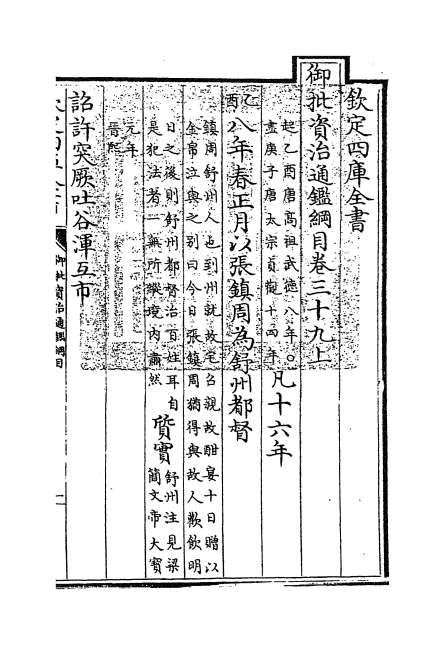 欽定四庫全書
御批資治通鑑綱目卷三十九上
起乙酉唐高祖武德八年。
盡庚子唐太宗貞觀十四年
凡十六年
乙酉
八年春正月以張鎮周為舒州都督
鎮周舒州人也到州就故宅召親故酣宴十日贈以
金帛泣與之别曰今日張鎮周猶得與故人歡飲明
日之後則舒州都督治百姓耳自
是犯法者一無所縱境内肅然
質實
舒州注見梁
簡文帝大寳
元年
詔許突厥吐谷渾互市
御批資治通鑑綱目
一